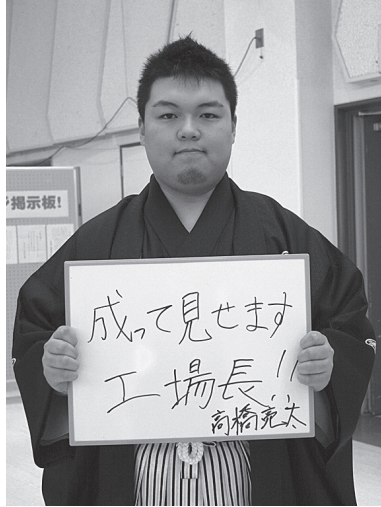 掲示板!
成って見せます
工場長!!
高橋亮太